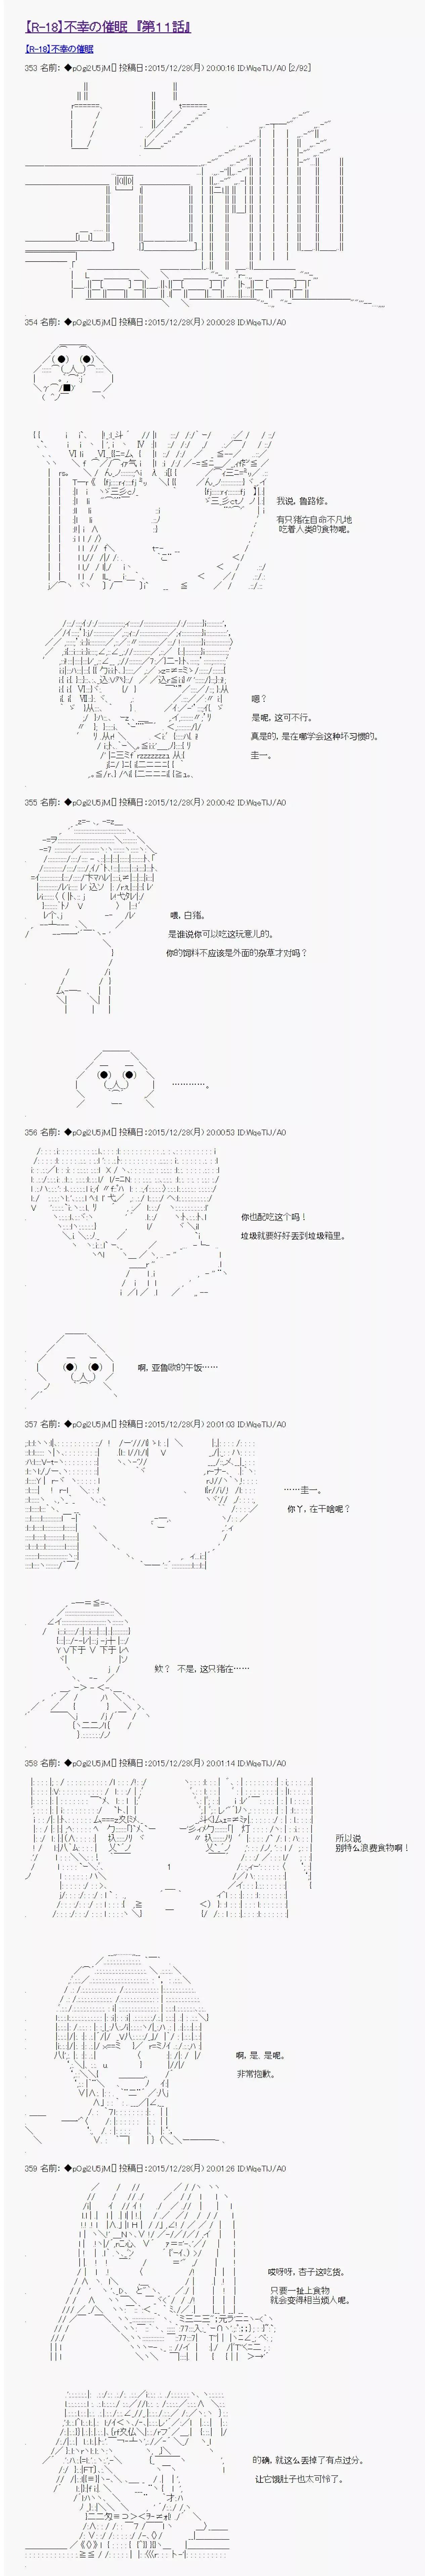 【R-18】不幸の催眠 『第11話』
【R-18】不幸の催眠
353 名前: ◆pOgi2U5jM[] 投稿日:2015/12/28(月) 20:00:16 ID:WqeTIJ/A0 [2/92]
354 名前: ◆pOgi2U5jM[] 投稿日:2015/12/28(月) 20:00:28 ID:WqeTIJ/A0
我说, 鲁路修。
有只猪在自命不凡地
吃着人类的食物呢。
嗯?
是呢, 这可不行。
真是的, 是在哪学会这种坏习惯的。
圭一。
355 名前: ◆pOgi2U5jM[] 投稿日:2015/12/28(月) 20:00:42 ID:WqeTIJ/A0
喂, 白猪。
是谁说你可以吃这玩意儿的。
你的饲料不应该是外面的杂草才对吗?
…………。
356 名前: ◆pOgi2U5jM[] 投稿日:2015/12/28(月) 20:00:53 ID:WqeTIJ/A0
你也配吃这个吗!
垃圾就要好好丢到垃圾箱里。
啊, 亚鲁欧的午饭……
357 名前: ◆pOgi2U5jM[] 投稿日:2015/12/28(月) 20:01:03 ID:WqeTIJ/A0
……圭一。
你丫, 在干啥呢?
欸? 不是, 这只猪在……
358 名前: ◆pOgi2U5jM[] 投稿日:2015/12/28(月) 20:01:14 ID:WqeTIJ/A0
所以说
别特么浪费食物啊!
啊, 是, 是呢。
非常抱歉。
359 名前: ◆pOgi2U5jM[] 投稿日:2015/12/28(月) 20:01:26 ID:WqeTIJ/A0
哎呀呀, 杏子这吃货。
只要一扯上食物
就会变得相当烦人呢。
的确, 就这么丢掉了有点过分。
让它饿肚子也太可怜了。